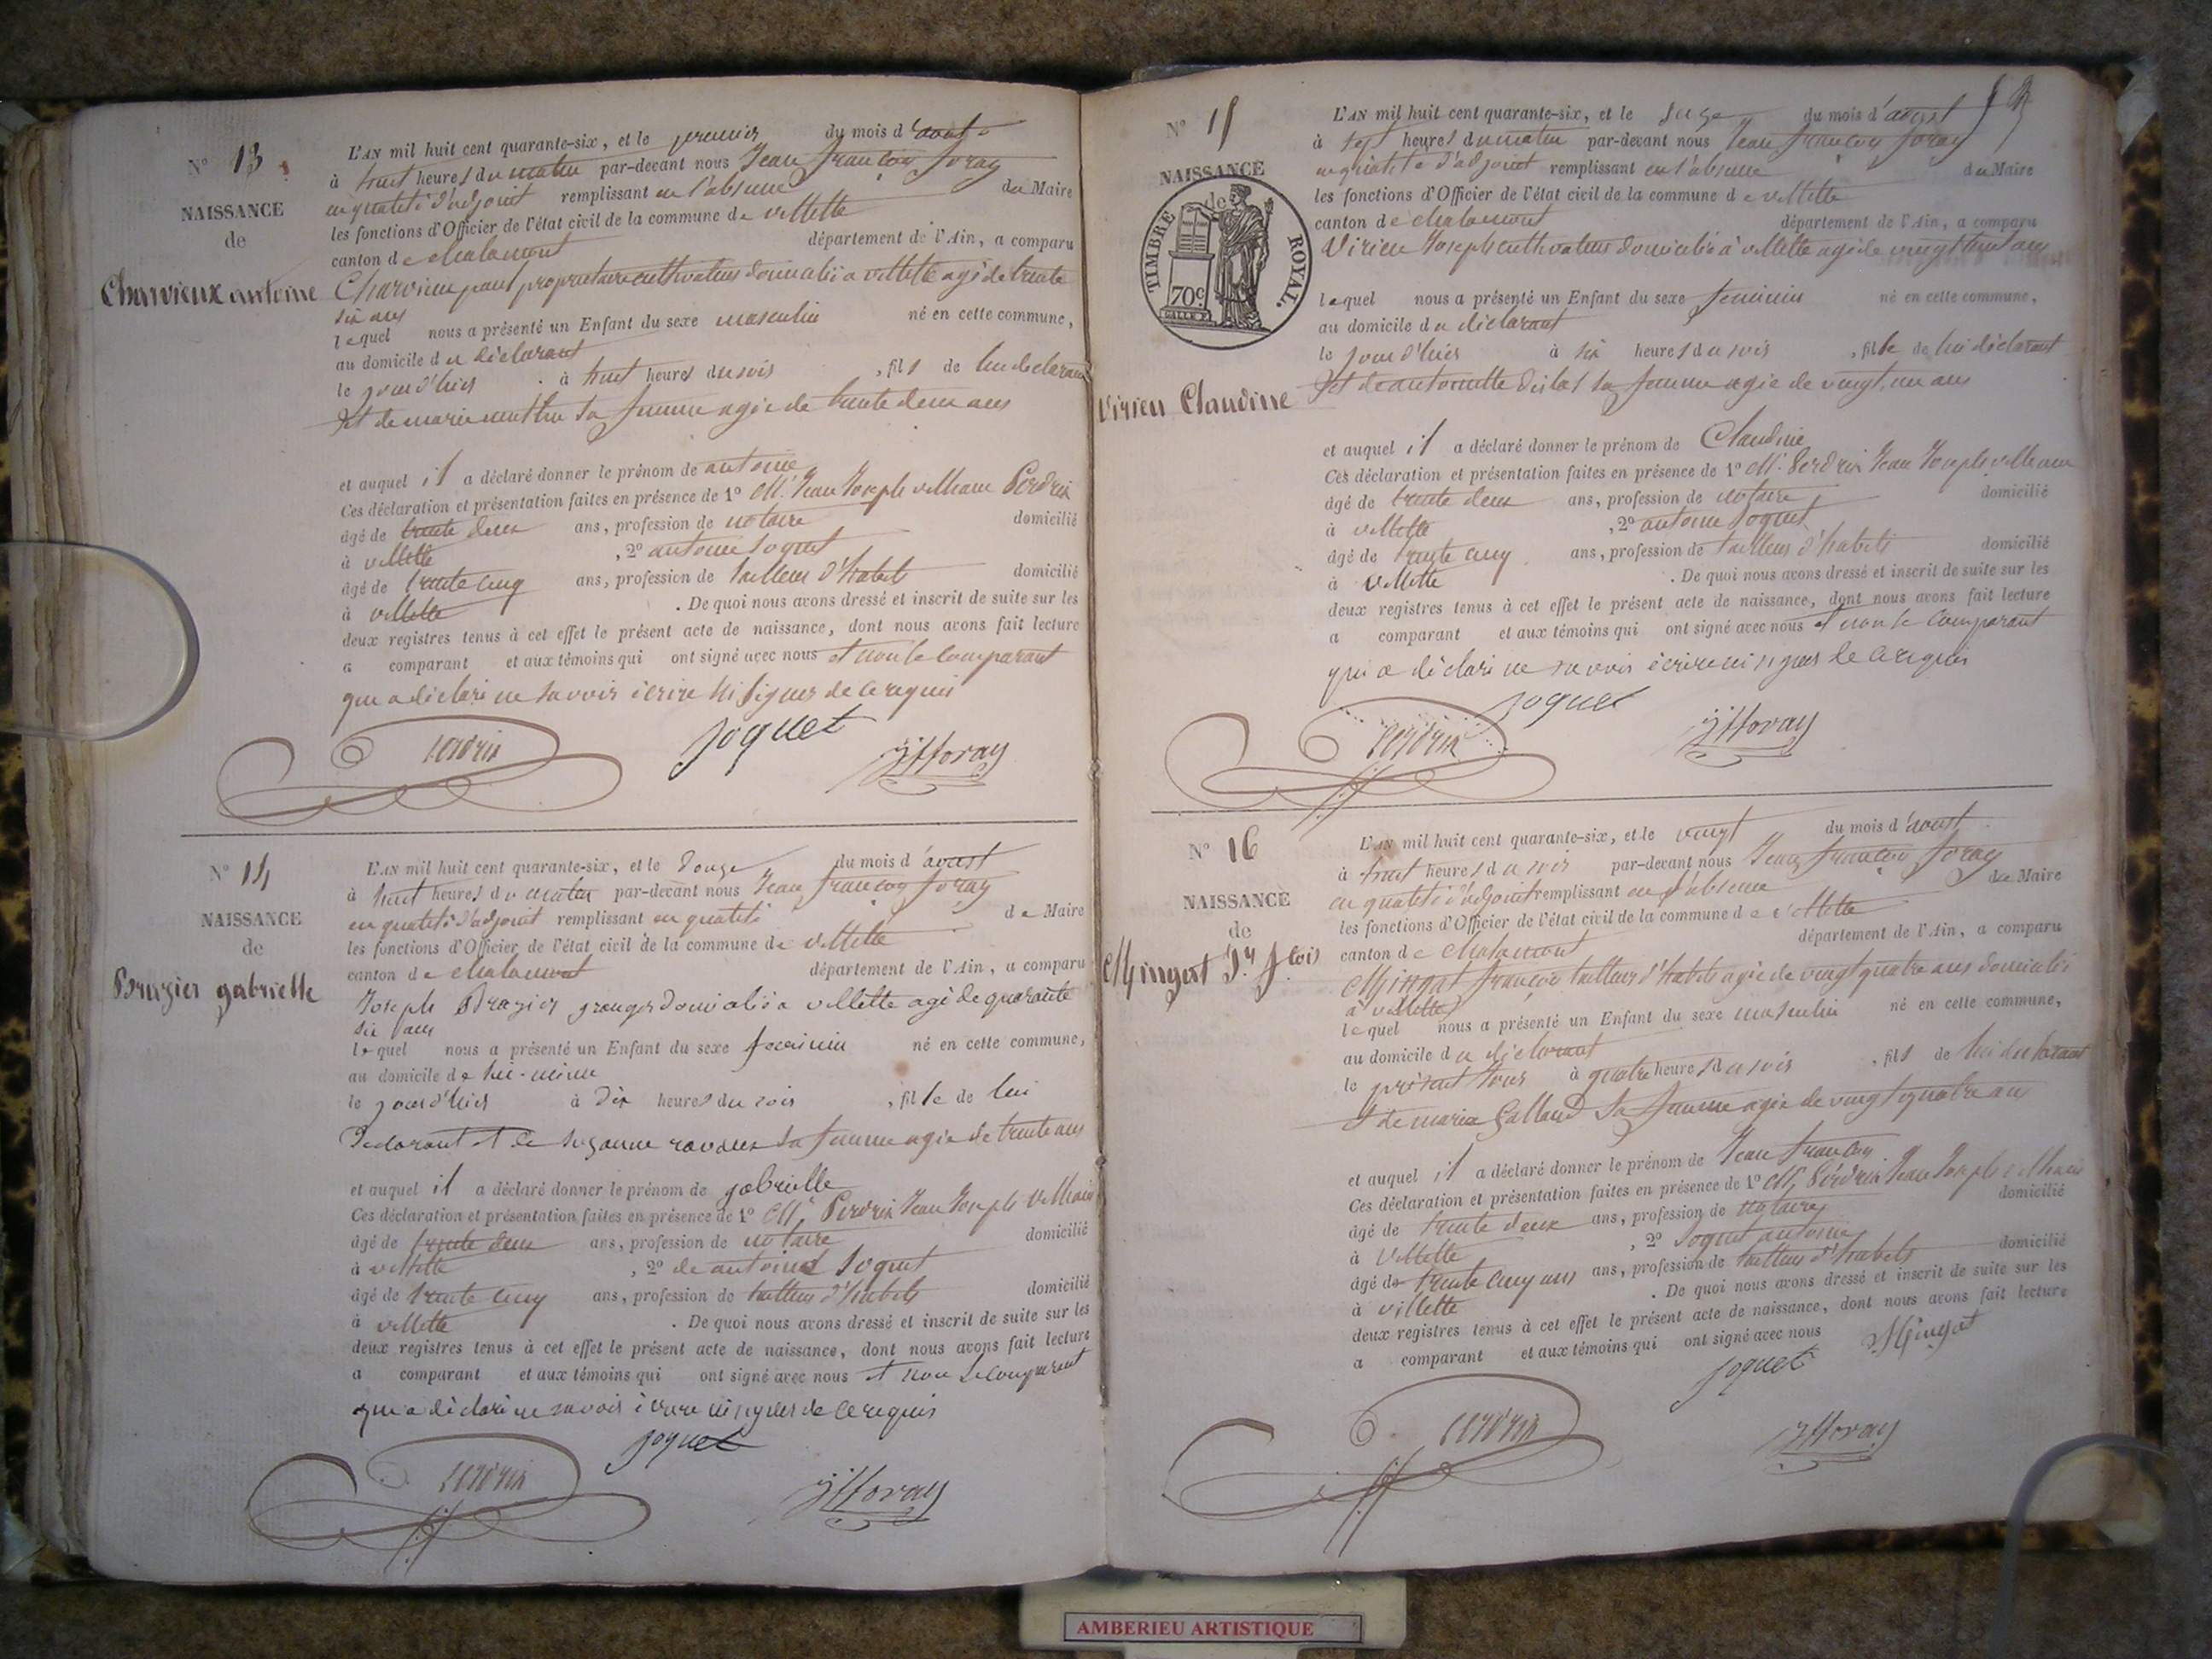 N° 13
NAISSANCE
de
Charvieux antoine
L'AN mil huit cent quarante-six, et le premier du mois d'aout
à huit heures du matin par-devant nous Jean françois foray
en qualité d'adjoint remplissant en l'absence du Maire
les fonctions d'Officier de l'état civil de la commune de villette
canton de chalamont département de l'Ain, a comparu
Charvieux paul propriétaire cultivateur domicilié a villette agé de trente
six ans
lequel nous a présenté un Enfant du sexe masculin né en cette commune,
au domicile du déclarant
le jour d'hier à huit heures du soir, fils de lui declarant
Et de marie sa femme agée de trente deux ans
et auquel il a déclaré donner le prénom de antoine
Ces déclaration et présentation faites en présence de 1° M. Jean Joseph Perdrix
âgé de trente deux ans, profession de notaire domicilié
à villette, 2° antoine joguet
âgé de trente cinq ans, profession de tailleur d'habits domicilié
à villette. De quoi nous avons dressé et inscrit de suite sur les
deux registres tenus à cet effet le présent acte de naissance, dont nous avons fait lecture
a comparant et aux témoins qui ont signé avec nous et non le comparant
qui a déclaré ne savoir écrire ni signer de ce requis
Perdrix joguet jfforay
N° 14
NAISSANCE
de
Brazier gabrielle
L'AN mil huit cent quarante-six, et le douze du mois d'aoust
à huit heures du matin par-devant nous Jean françois foray
en qualité d'adjoint remplissant en qualité de Maire
les fonctions d'Officier de l'état civil de la commune de villette
canton de chalamont département de l'Ain, a comparu
Joseph Brazier granger domicilié a villette agé de quarante
six ans
lequel nous a présenté un Enfant du sexe feminin né en cette commune,
au domicile de lui-même
le jour d'hier à dix heures du soir, fille de lui
Declarant et de suzanne sa femme agée de trente ans
et auquel il a déclaré donner le prénom de gabrielle
Ces déclaration et présentation faites en présence de 1° M. Perdrix Jean Joseph
âgé de trente deux ans, profession de notaire domicilié
à villette, 2° de antoine Joguet
âgé de trente cinq ans, profession de tailleur d'habits domicilié
à villette. De quoi nous avons dressé et inscrit de suite sur les
deux registres tenus à cet effet le présent acte de naissance, dont nous avons fait lecture
a comparant et aux témoins qui ont signé avec nous et non le comparant
qui a déclaré ne savoir écrire ni signer de ce requis
Perdrix joguet jfforay
N° 15
NAISSANCE
de
TIMBRE ROYAL.
70c
Virieu Claudine
L'AN mil huit cent quarante-six, et le seize du mois d'aoust
à sept heures du matin par-devant nous Jean françois foray
en qualité d'adjoint remplissant en l'absence du Maire
les fonctions d'Officier de l'état civil de la commune de villette
canton de chalamont département de l'Ain, a comparu
Virieu Joseph cultivateur domicilié à villette agé de vingt huit ans
lequel nous a présenté un Enfant du sexe feminin né en cette commune,
au domicile du déclarant
le jour d'hier à six heures du soir, fille de lui déclarant
Et de antoinette sa femme agée de vingt un ans
et auquel il a déclaré donner le prénom de Claudine
Ces déclaration et présentation faites en présence de 1° M. Perdrix Jean Joseph
âgé de trente deux ans, profession de notaire domicilié
à villette, 2° antoine Joguet
âgé de trente cinq ans, profession de tailleur d'habits domicilié
à villette. De quoi nous avons dressé et inscrit de suite sur les
deux registres tenus à cet effet le présent acte de naissance, dont nous avons fait lecture
a comparant et aux témoins qui ont signé avec nous et non le comparant
qui a déclaré ne savoir écrire ni signer de ce requis
Perdrix joguet jfforay
N° 16
NAISSANCE
de
Mingat Jn fcois
L'AN mil huit cent quarante-six, et le vingt du mois d'aoust
à huit heures du soir par-devant nous Jean françois foray
en qualité d'adjoint remplissant en l'absence du Maire
les fonctions d'Officier de l'état civil de la commune de villette
canton de chalamont département de l'Ain, a comparu
Mingat françois tailleur d'habits agé de vingt quatre ans domicilié
a villette
lequel nous a présenté un Enfant du sexe masculin né en cette commune,
au domicile du déclarant
le présent jour à quatre heures du soir, fils de lui declarant
et de marie Galland sa femme agée de vingt quatre ans
et auquel il a déclaré donner le prénom de Jean françois
Ces déclaration et présentation faites en présence de 1° M. Perdrix Jean Joseph
âgé de trente deux ans, profession de notaire domicilié
à villette, 2° Joguet antoine
âgé de trente cinq ans ans, profession de tailleur d'habits domicilié
à villette. De quoi nous avons dressé et inscrit de suite sur les
deux registres tenus à cet effet le présent acte de naissance, dont nous avons fait lecture
a comparant et aux témoins qui ont signé avec nous
Mingat
joguet
Perdrix jfforay
AMBERIEU ARTISTIQUE